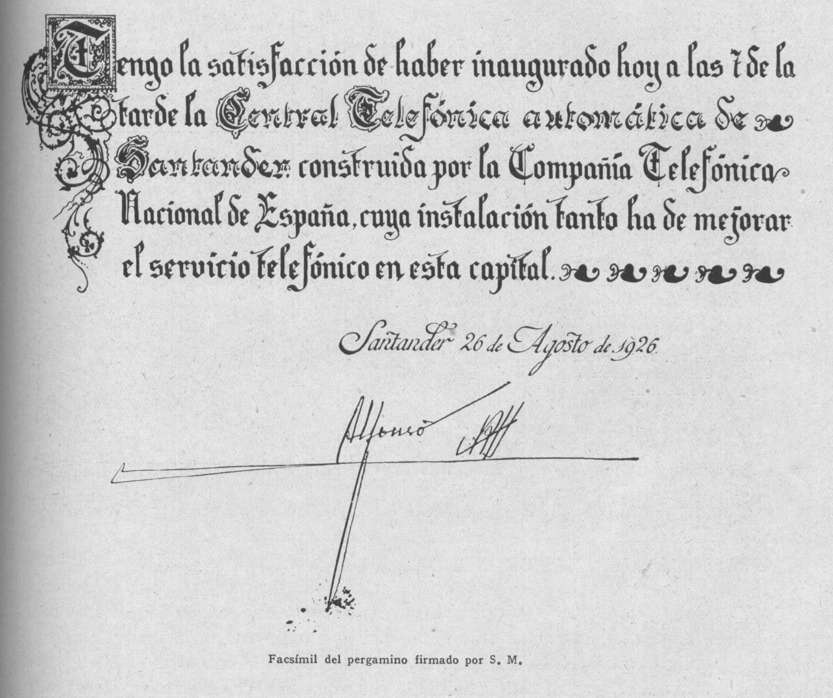 Tengo la satisfacción de haber inaugurado hoy a las 7 de la
tarde la Central Telefónica automática de
Santander construida por la Compañía Telefónica
Nacional de España, cuya instalación tanto ha de mejorar
el servicio telefónico en esta capital.
Santander 26 de Agosto de 1926.
Alfonso
Facsímil del pergamino firmado por S. M.